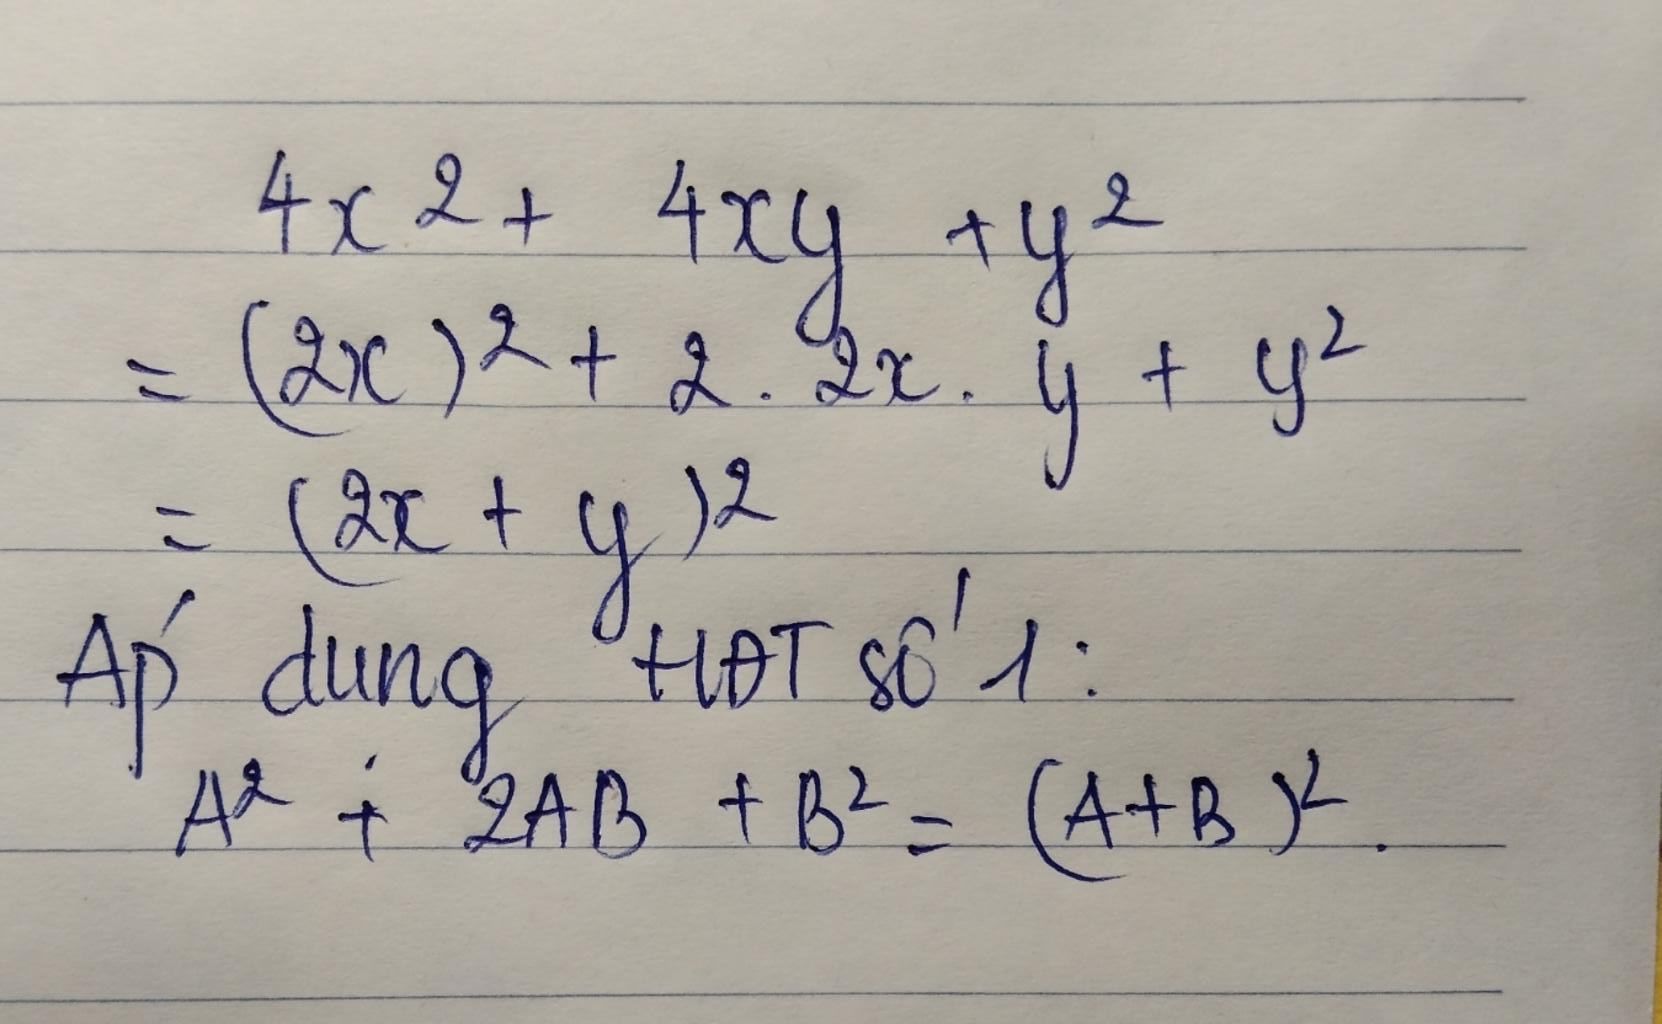 4x² + 4xy + y²
= (2x)² + 2 . 2x . y + y²
= (2x + y)²
Áp dụng HĐT số 1 :
A² + 2AB + B² = (A+B)².